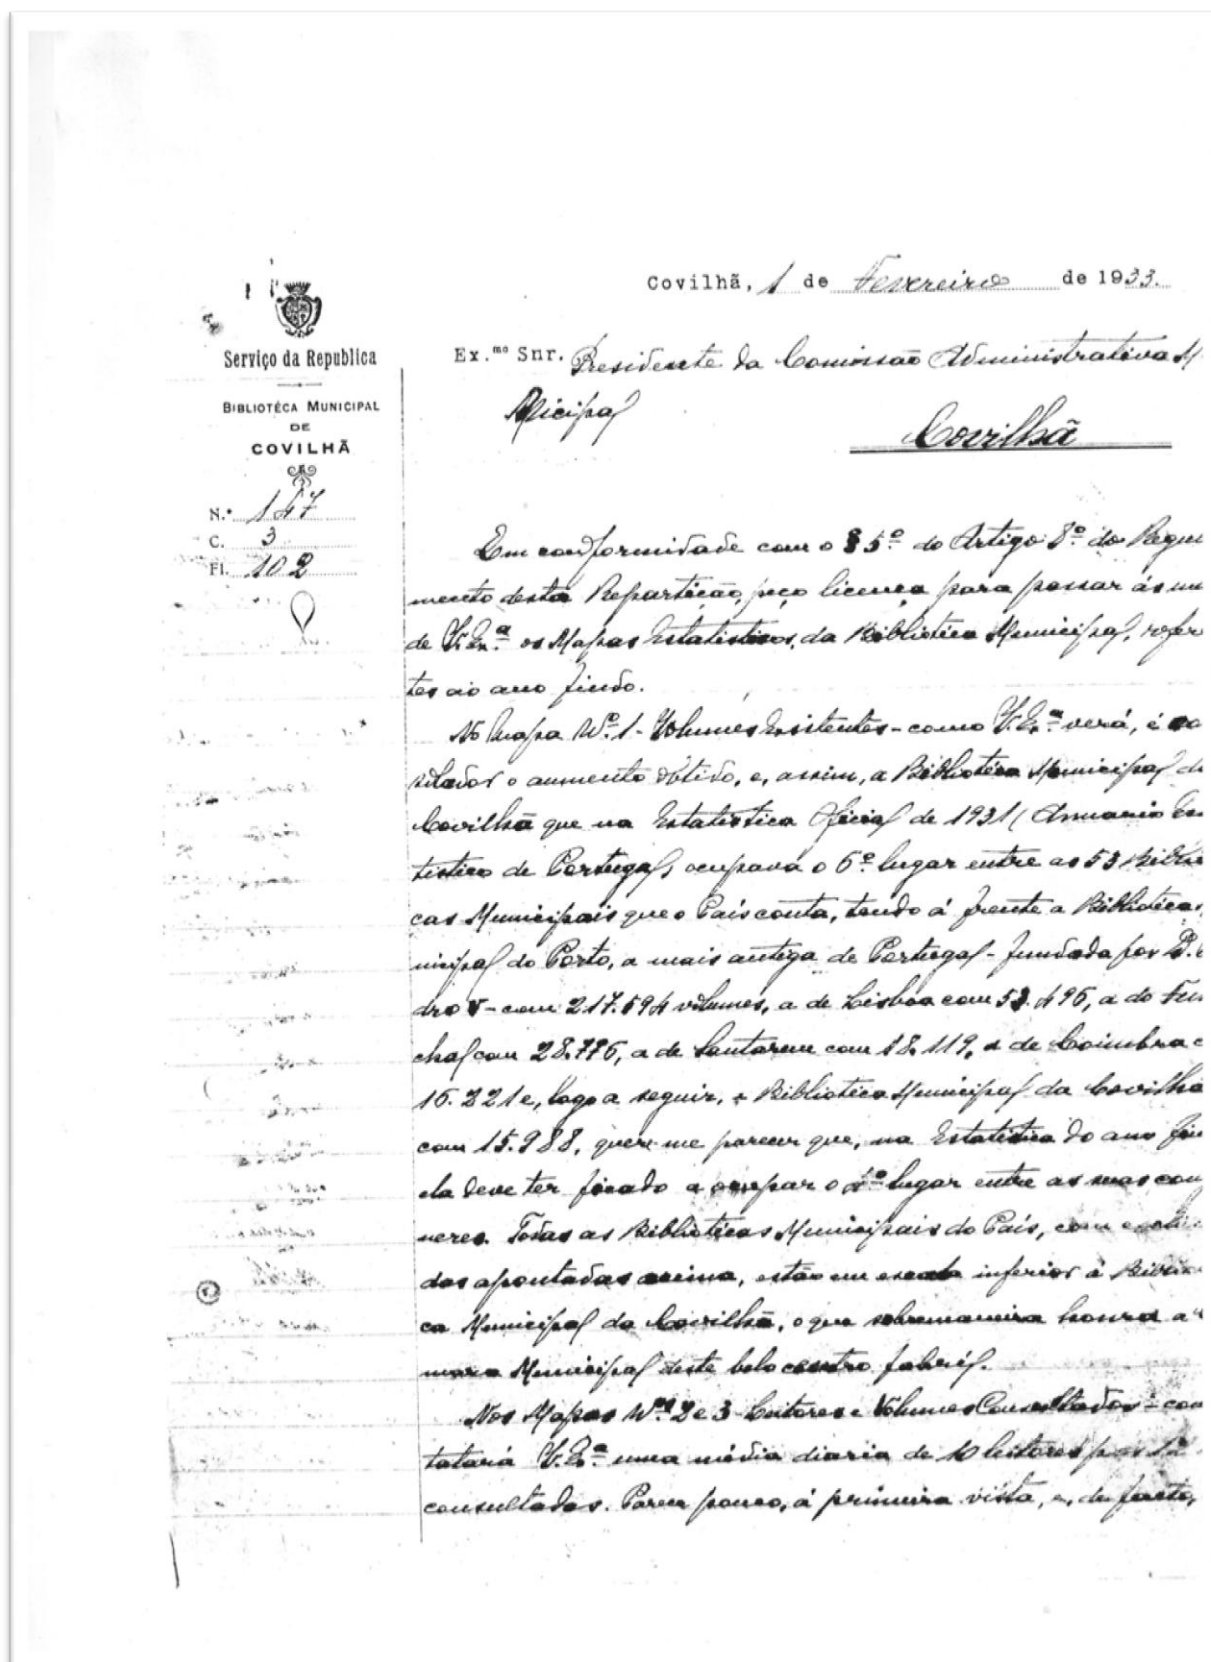 Covilhã, 1 de Fevereiro de 1933.
Serviço da Republica
BIBLIOTÉCA MUNICIPAL
DE
COVILHÃ
N.º 147
C. 3
Fl. 102
Ex.mo Snr. Presidente da Comissão Administrativa M
nicipal
Covilhã
Em conformidade com o § 5º do Artigo 8º do Regu
mento desta Repartição, peço licença para passar ás
de V. Ex.ª os Mapas Estatisticos, da Bibliotéca Municipal, refer
tes ao ano findo.
No Mapa Nº 1 - Volumes Existentes - como V. Ex.ª verá, é
o aumento obtido, e, assim, a Bibliotéca Municipal d
Covilhã que na Estatistica Oficial de 1931 (Anuario Es
tistico de Portugal) ocupava o 6º lugar entre as 53 Biblio
cas Municipais que o País conta, tendo á frente a Bibliotéca
nicipal do Porto, a mais antiga de Portugal - fundada por D.
dro V - com 217.594 volumes, a de Lisboa com 53.496, a do Fun
chal com 28.776, a de Santarem com 18.119, a de Coimbra c
16.221 e, logo a seguir, a Bibliotéca Municipal da Covilhã
com 15.988, quere-me parecer que, na Estatistica do ano fin
ela deve ter ficado a ocupar o lugar entre as suas con
neres. Todas as Bibliotécas Municipais do País, com
das apontadas acima, estão em escala inferior á Biblio
ca Municipal da Covilhã, o que sobremaneira honra a
mara Municipal deste belo centro fabril.
Nos Mapas Nos 2 e 3 - Leitores e Volumes Consultados - con
tatará V. Ex.ª uma média diaria de 10 leitores
consultados. Parece pouco, á primeira vista, e, de facto,